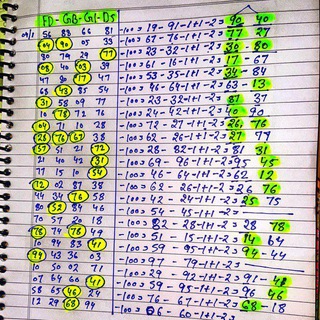 FD - GB - G1 - DS
09/1 56 88 66 81 -100= 19 - 91-1+1-2= 90 40
04 90 05 33 -100= 67 - 76-1+1-2= 77 27
80 79 29 77 -100= 23 - 32-1+1-2= 30 - 80
08 40 03 39 -100= 61 - 16-1+1-2= 17 - 67
-100= 53 - 35-1+1-2= 34 - 84
68 43 85 54 -100= 36 - 63-1+1-2= 63 - 13
31 58 09 77 -100= 23 - 32-1+1-2= 87 37
10 78 72 76 -100= 24 - 42-1+1-2= 40 90
04 71 10 28 -100= 72 - 27-1+1-2= 26 76
28 76 67 38 -100= 62 - 26-1+1-2= 27 77
57 51 21 72 -100= 28 - 82-1+1-2= 81 31
21 40 42 31 -100= 69 - 96-1+1-2= 95 45
77 15 10 54 -100= 46 - 64-1+1-2= 62 12
12 02 87 38 -100= 62 - 26-1+1-2= 26 76
44 34 76 58 -100= 42 - 24-1+1-2= 25 75
80 52 84 46 -100= 54 - 45-1+1-2=
70 57 20 18 -100= 82 - 28-1+1-2= 28 78
76 74 78 49 -100= 15-1+1-2= 14 64
10 94 83 41 -100= 59 - 95-1+1-2= 94 - 44
94 43 36 03 -100= 97 - 79-1+1-2=
10 50 02 71 -100= 29 - 92-1+1-2= 91 -
07 64 60 41 -100= 59 - 95-1+1-2= 96 46
58 65 46 24 -100= 76 - 67-1+1-2= 68 - 18
12 29 68 94 -100= 06 - 60-1+1-2=